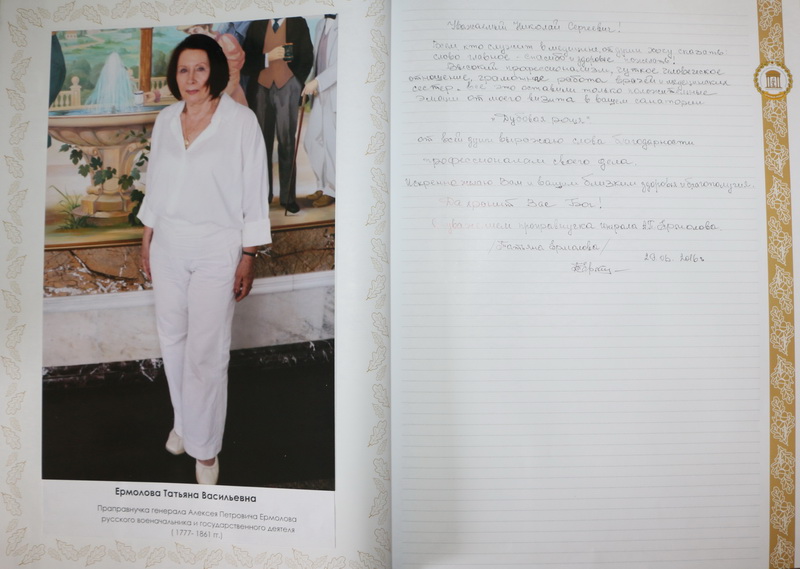 Ермолова Татьяна Васильевна
Праправнучка генерала Алексея Петровича Ермолова
русского военачальника и государственного деятеля
( 1777- 1861 гг.)
Уважаемый Николай Сергеевич!
Всем кто служит в медицине, от души хочу сказать
слово главное - спасибо и здоровье пожелать!
Высокий профессионализм, чуткое человеческое
отношение, грамотная работа врачей и медицинских
сестер. Все это оставили только положительные
эмоции от моего визита в вашем санатории
"Дубовая роща"
от всей души выражаю слова благодарности
профессионалам своего дела.
Искренно желаю Вам и вашим близким здоровья и благополучия.
Да хранит Вас Бог!
С уважением праправнучка генерала А.П. Ермолова.
/Татьяна Ермолова/
29.06. 2016г